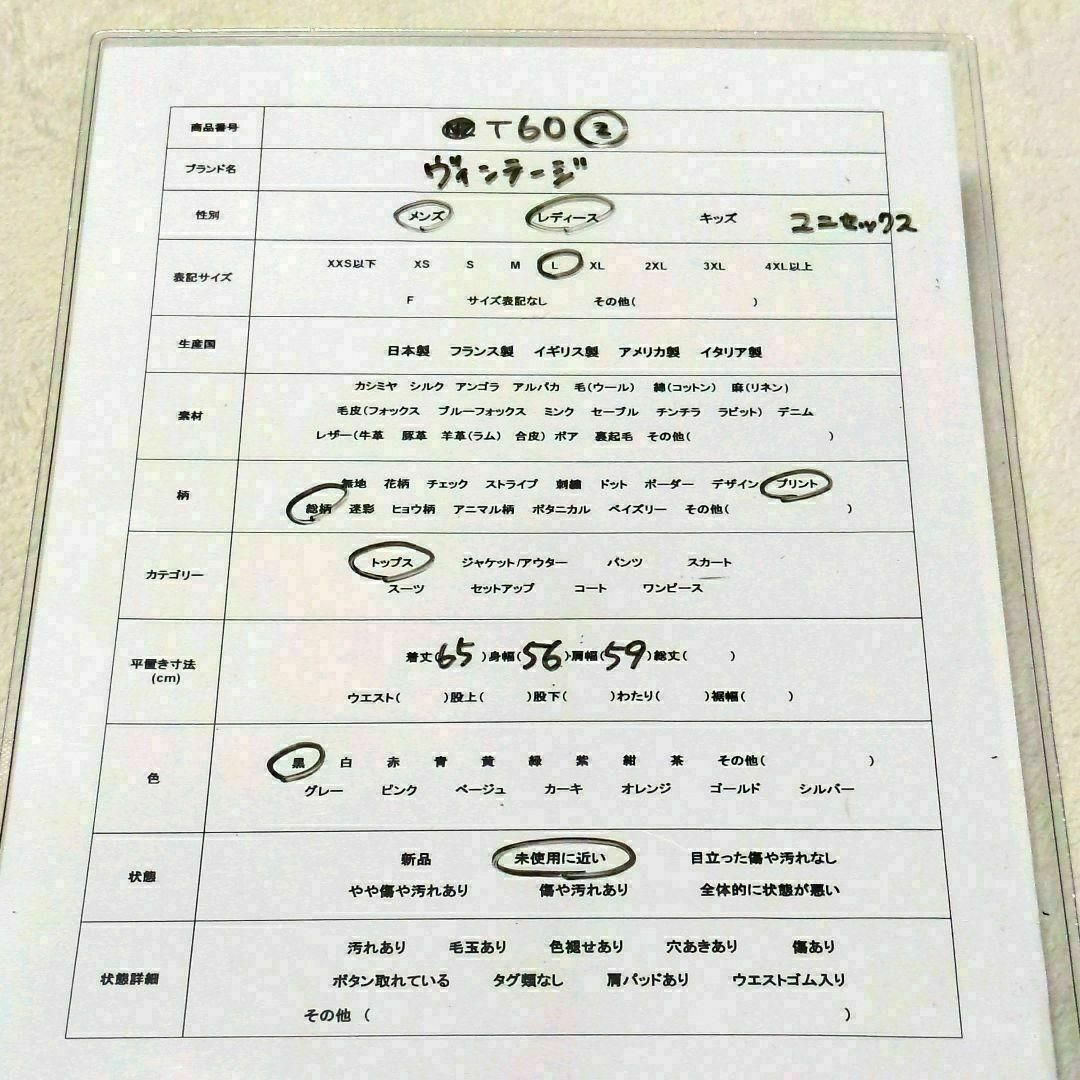 商品番号 T60 ②
ブランド名 ヴィンテージ
性別 メンズ レディース キッズ ユニセックス
表記サイズ XXS以下 XS S M L XL 2XL 3XL 4XL以上
F サイズ表記なし その他( )
生産国 日本製 フランス製 イギリス製 アメリカ製 イタリア製
カシミヤ シルク アンゴラ アルパカ 毛(ウール) 綿(コットン) 麻(リネン)
素材 毛皮(フォックス ブルーフォックス ミンク セーブル チンチラ ラビット) デニム
レザー(牛革 豚革 羊革(ラム) 合皮) ボア 裏起毛 その他( )
柄 無地 花柄 チェック ストライプ 刺繍 ドット ボーダー デザイン プリント
総柄 迷彩 ヒョウ柄 アニマル柄 ボタニカル ペイズリー その他( )
カテゴリー トップス ジャケット/アウター パンツ スカート
スーツ セットアップ コート ワンピース
平置き寸法 着丈(65)身幅(56)肩幅(59)総丈( )
(cm) ウエスト( )股上( )股下( )わたり( )裾幅( )
色 黒 白 赤 青 黄 緑 紫 紺 茶 その他( )
グレー ピンク ベージュ カーキ オレンジ ゴールド シルバー
状態 新品 未使用に近い 目立った傷や汚れなし
やや傷や汚れあり 傷や汚れあり 全体的に状態が悪い
汚れあり 毛玉あり 色褪せあり 穴あきあり 傷あり
状態詳細 ボタン取れている タグ類なし 肩パッドあり ウエストゴム入り
その他 ( )